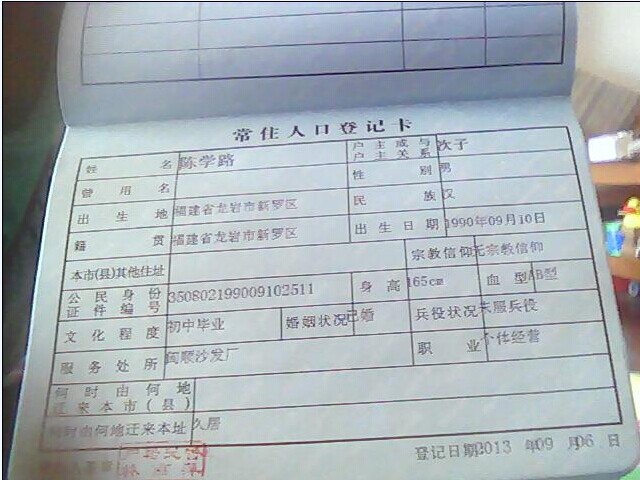 常住人口登记卡
姓名 陈学路 户主或与户主关系 次子
曾用名 性别 男
出生地 福建省龙岩市新罗区 民族 汉
籍贯 福建省龙岩市新罗区 出生日期 1990年09月10日
本市(县)其他住址 宗教信仰 无宗教信仰
公民身份证件编号 350802199009102511 身高 165cm 血型 AB型
文化程度 初中毕业 婚姻状况 已婚 兵役状况 未服兵役
服务处所 闽顺沙发厂 职业 个体经营
何时由何地迁来本市(县)
何时由何地迁来本址 久居
登记日期 2013 年 09 月 06 日